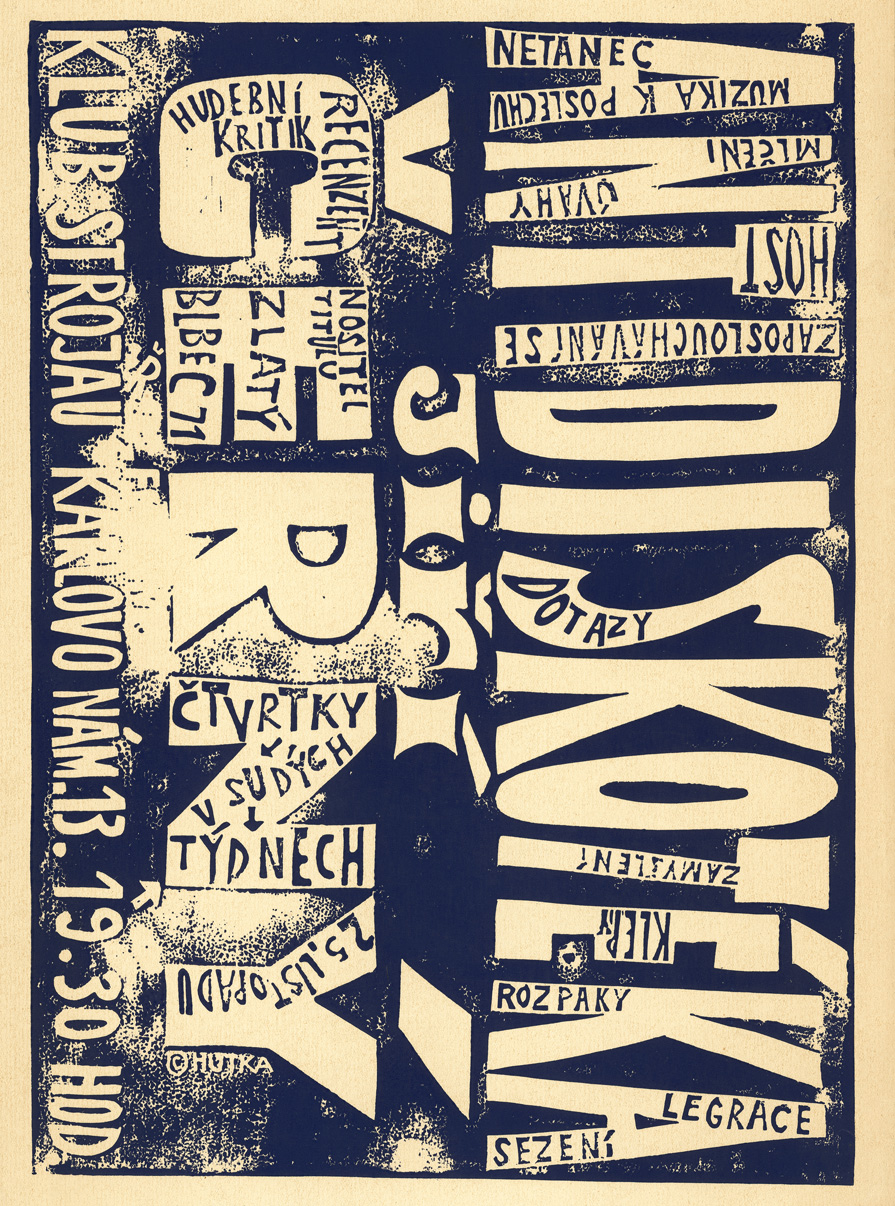 ANTIDISKOTÉKA
NETANEC
MUZIKA K POSLECHU
MLČENÍ
ÚVAHY
HOST
ZAPOSLOUCHÁVÁNÍ SE
DOTAZY
ZAMYŠLENÍ
KLEPY
ROZPAKY
LEGRACE
SEZENÍ
JIŘÍ
ČERNÝ
HUDEBNÍ
KRITIK
RECENZENT
NOSITEL
TITULU
ZLATÝ
BLBEC 71
ČTVRTKY
V SUDÝCH
TÝDNECH
25. LISTOPADU
©HUTKA
KLUB STROJAŘU KARLOVO NÁM. 13. 19.30 HOD.